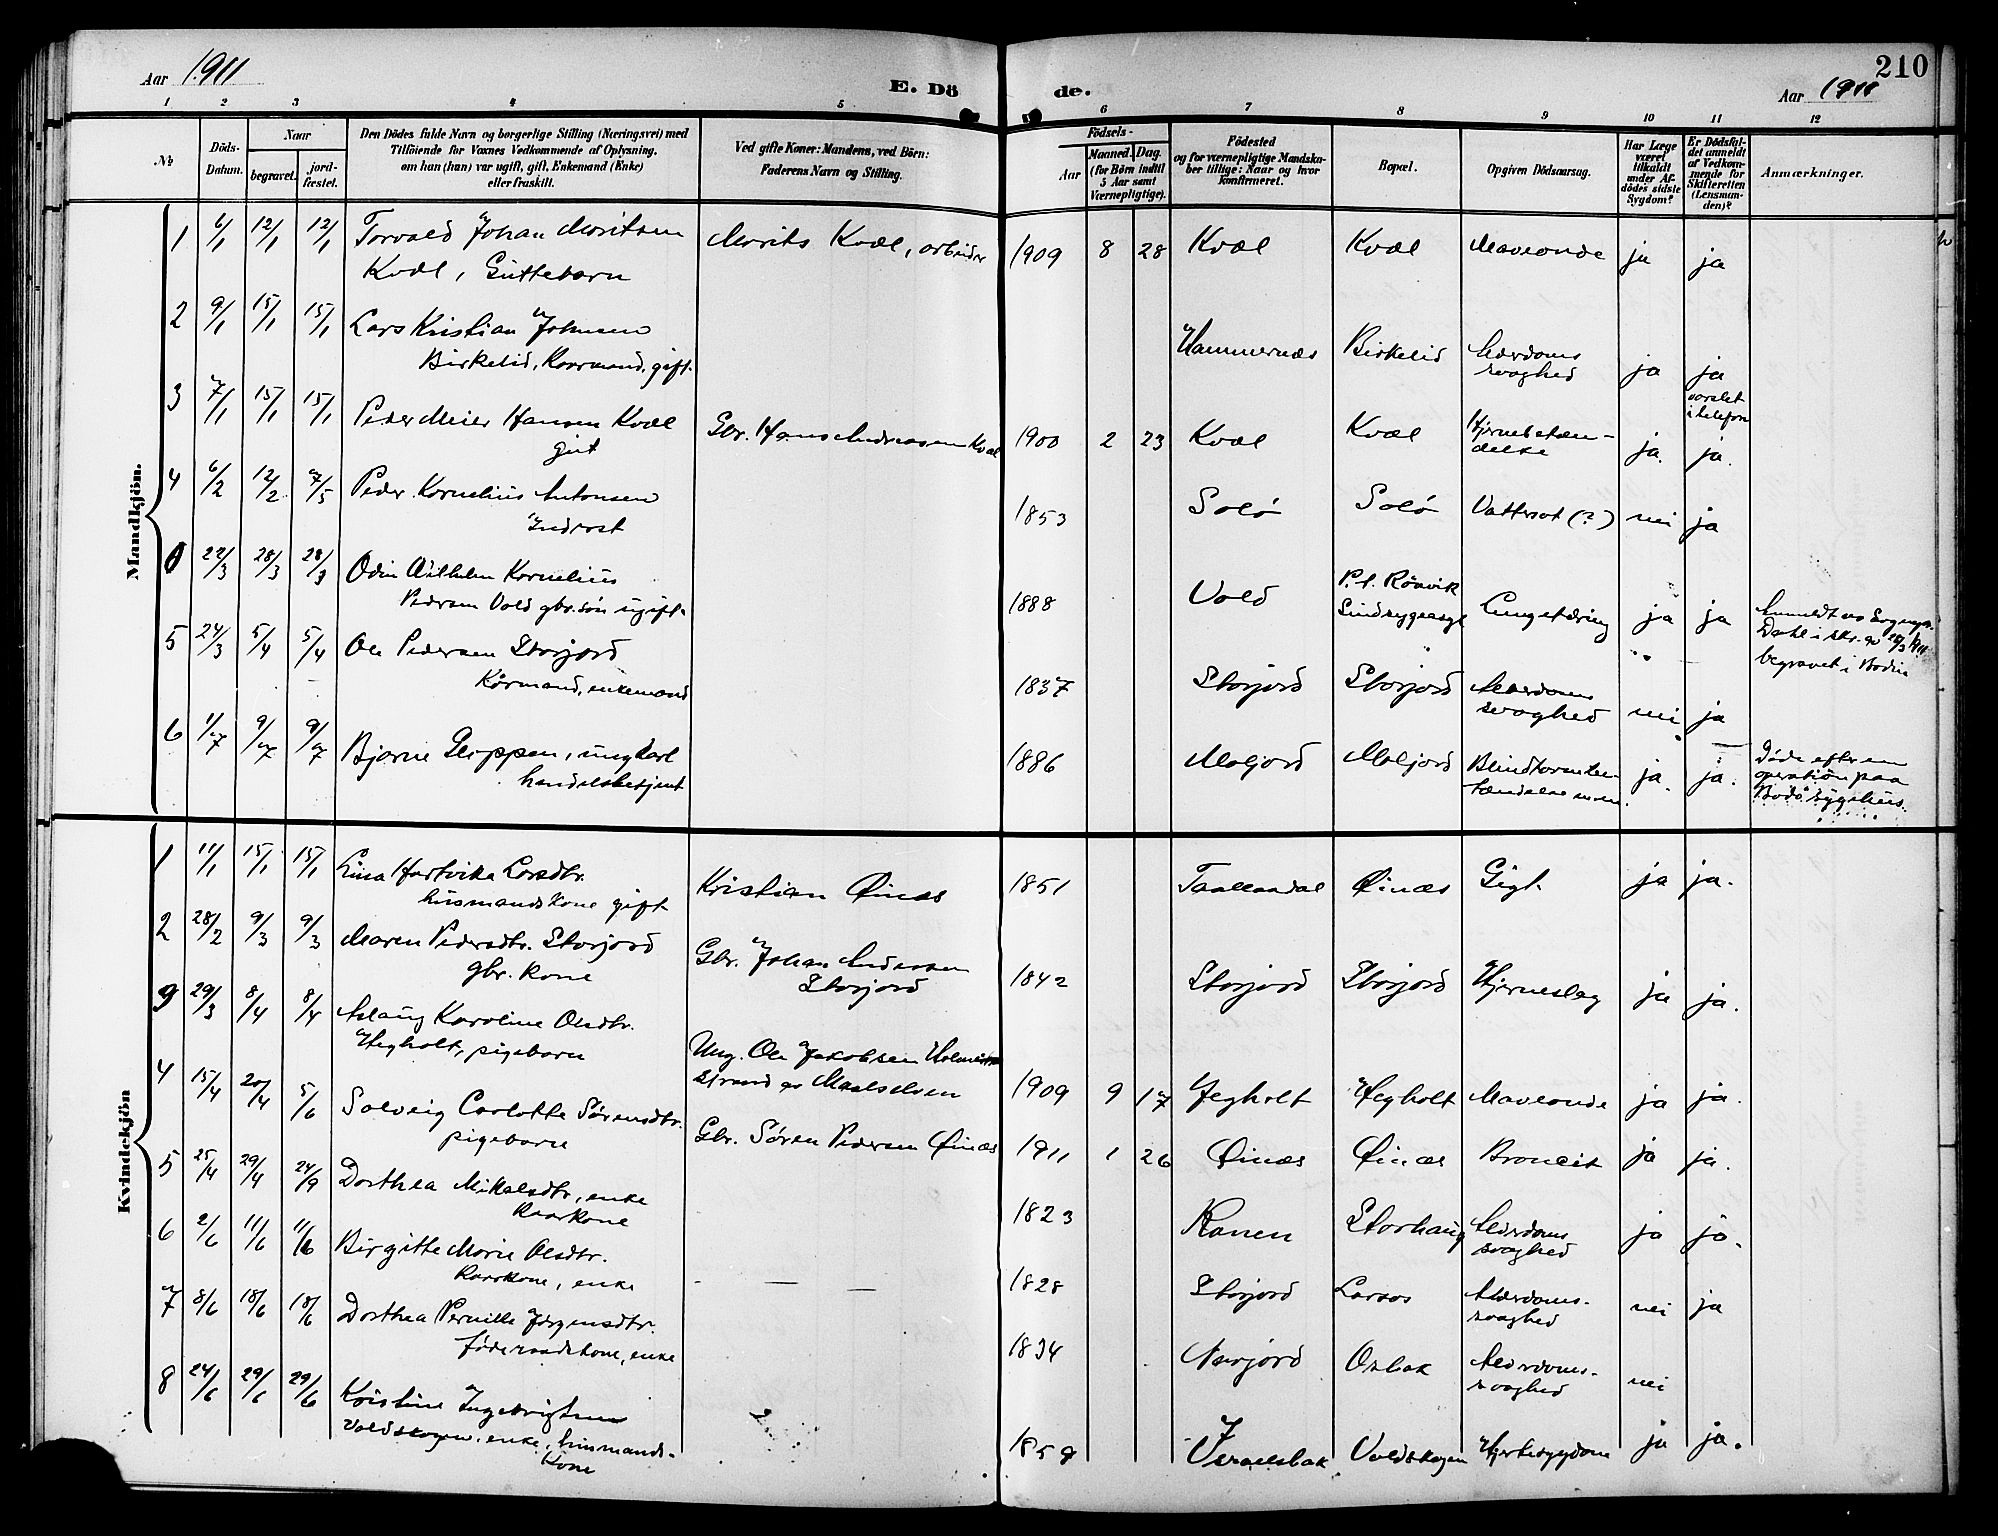 Aar 1911
E. Dö
de.
210
Aar 1911
1 2 3 4 5 6 7 8 9 10 11 12
No
Döds-
Datum.
Naar
begravet.
jord-
fæstet.
Den Dödes fulde Navn og borgerlige Stilling (Næringsvei) med
Tilföiende for Voxnes Vedkommende af Oplysning,
om han (hun) var ugift, gift, Enkemand (Enke)
eller fraskilt.
Ved gifte Koner: Mandens, ved Börn:
Faderens Navn og Stilling.
Födsels-
Aar
Maaned.
Dag.
(for Børn indtil
5 Aar samt
Værnepligtige).
Födested
og for værnepligtige Mandska-
ber tillige: Naar og hvor
konfirmeret.
Bopæl.
Opgiven Dödsaarsag.
Har Læge
været
tilkaldt
under Af-
dödes sidste
Sygdom?
Er Dödsfal-
det anmeldt
af Vedkom-
mende for
Skifteretten
(Lensman-
den)?
Anmærkninger.
Mandkjön.
1 6/1 12/1 12/1 Torvald Johan Moritsen
Kvæl, Guttebarn
Morits Kvæl, arbeider
1909 8 28 Kvæl Kvæl Maveonde ja ja
2 9/1 15/1 15/1 Lars Kristian Johnsen
Birkelid, Kaarmand, gift.
Hammernæs Birkelid Alderdoms
svaghed ja ja
varslet
i telefon
3 7/1 15/1 15/1 Peder Meier Hansen Kvæl
gut
Gbr. Hans Andreasen Kvæl
1900 2 23 Kvæl Kvæl Hjernebetæn-
delse ja. ja.
4 6/2 12/2 7/5 Peder Kornelius Antonsen
Indrest
1853 Solø Solø Vattersot (?) nei ja
0 22/3 28/3 28/3 Odin Wilhelm Kornelius
Pedersen Vold gbr. søn ugift.
1888 Vold P. t. Rønvik
Sindsygeasyl Lungetæring ja ja Anmeldt av Sognepr.
Dahl i skr. av
begravet i Bodin
5 24/3 5/4 5/4 Ole Pedersen Storjord
Kårmand, enkemand
1837 Storjord Storjord Alderdoms
svaghed nei ja
6 1/7 9/7 9/7 Bjarne Gleppen, ungkarl
handelsbetjent
1886 Moljord Moljord Blindtarmbe-
tændelse m.m. ja. ja. Døde efter en
operation paa
Bodø sygehus.
Kvindekjön
1 11/1 15/1 15/1 Lina Hartvika Larsdtr.
husmandskone gift
Kristian Øines
1851 Øinæs Gigt. ja ja.
2 28/2 9/3 9/3 Maren Pedersdtr. Storjord
gbr. kone
Gbr. Johan Andersen
Storjord
1842 Storjord Storjord Hjerneslag ja ja.
3 29/3 8/4 8/4 Aslaug Karoline Olsdtr.
Hegholt, pigebarn
Ung. Ole Jakobsen
strand av Maalselven
1909 9 17 Hegholt Hegholt Maveonde ja ja.
4 15/4 20/4 5/6 Solveig Carlotte Sørensdtr.
pigebarn
Gbr. Søren Pedersen Øinæs
1911 1 26 Øinæs Øinæs Bronkit ja ja.
5 25/4 29/4 24/9 Dorthea Mikalsdtr, enke
Kaarkone
1823 Ranen Storhaug Alderdoms
svaghed ja ja.
6 2/6 11/6 11/6 Birgitte Marie Olsdtr.
Kaarkone, enke
1828 Storjord Larsos Alderdoms-
svaghed nei ja
7 8/6 18/6 18/6 Dorthea Pernille Jørgensdtr.
føderaadskone, enke
1834 Osbak Alderdoms-
svaghed nei
8 24/6 29/6 29/6 Kristine Ingebrigtsen
Voldskogen. enke, husmands-
kone
1859 Israelsbak Voldskogen Hjertesygdom ja ja.